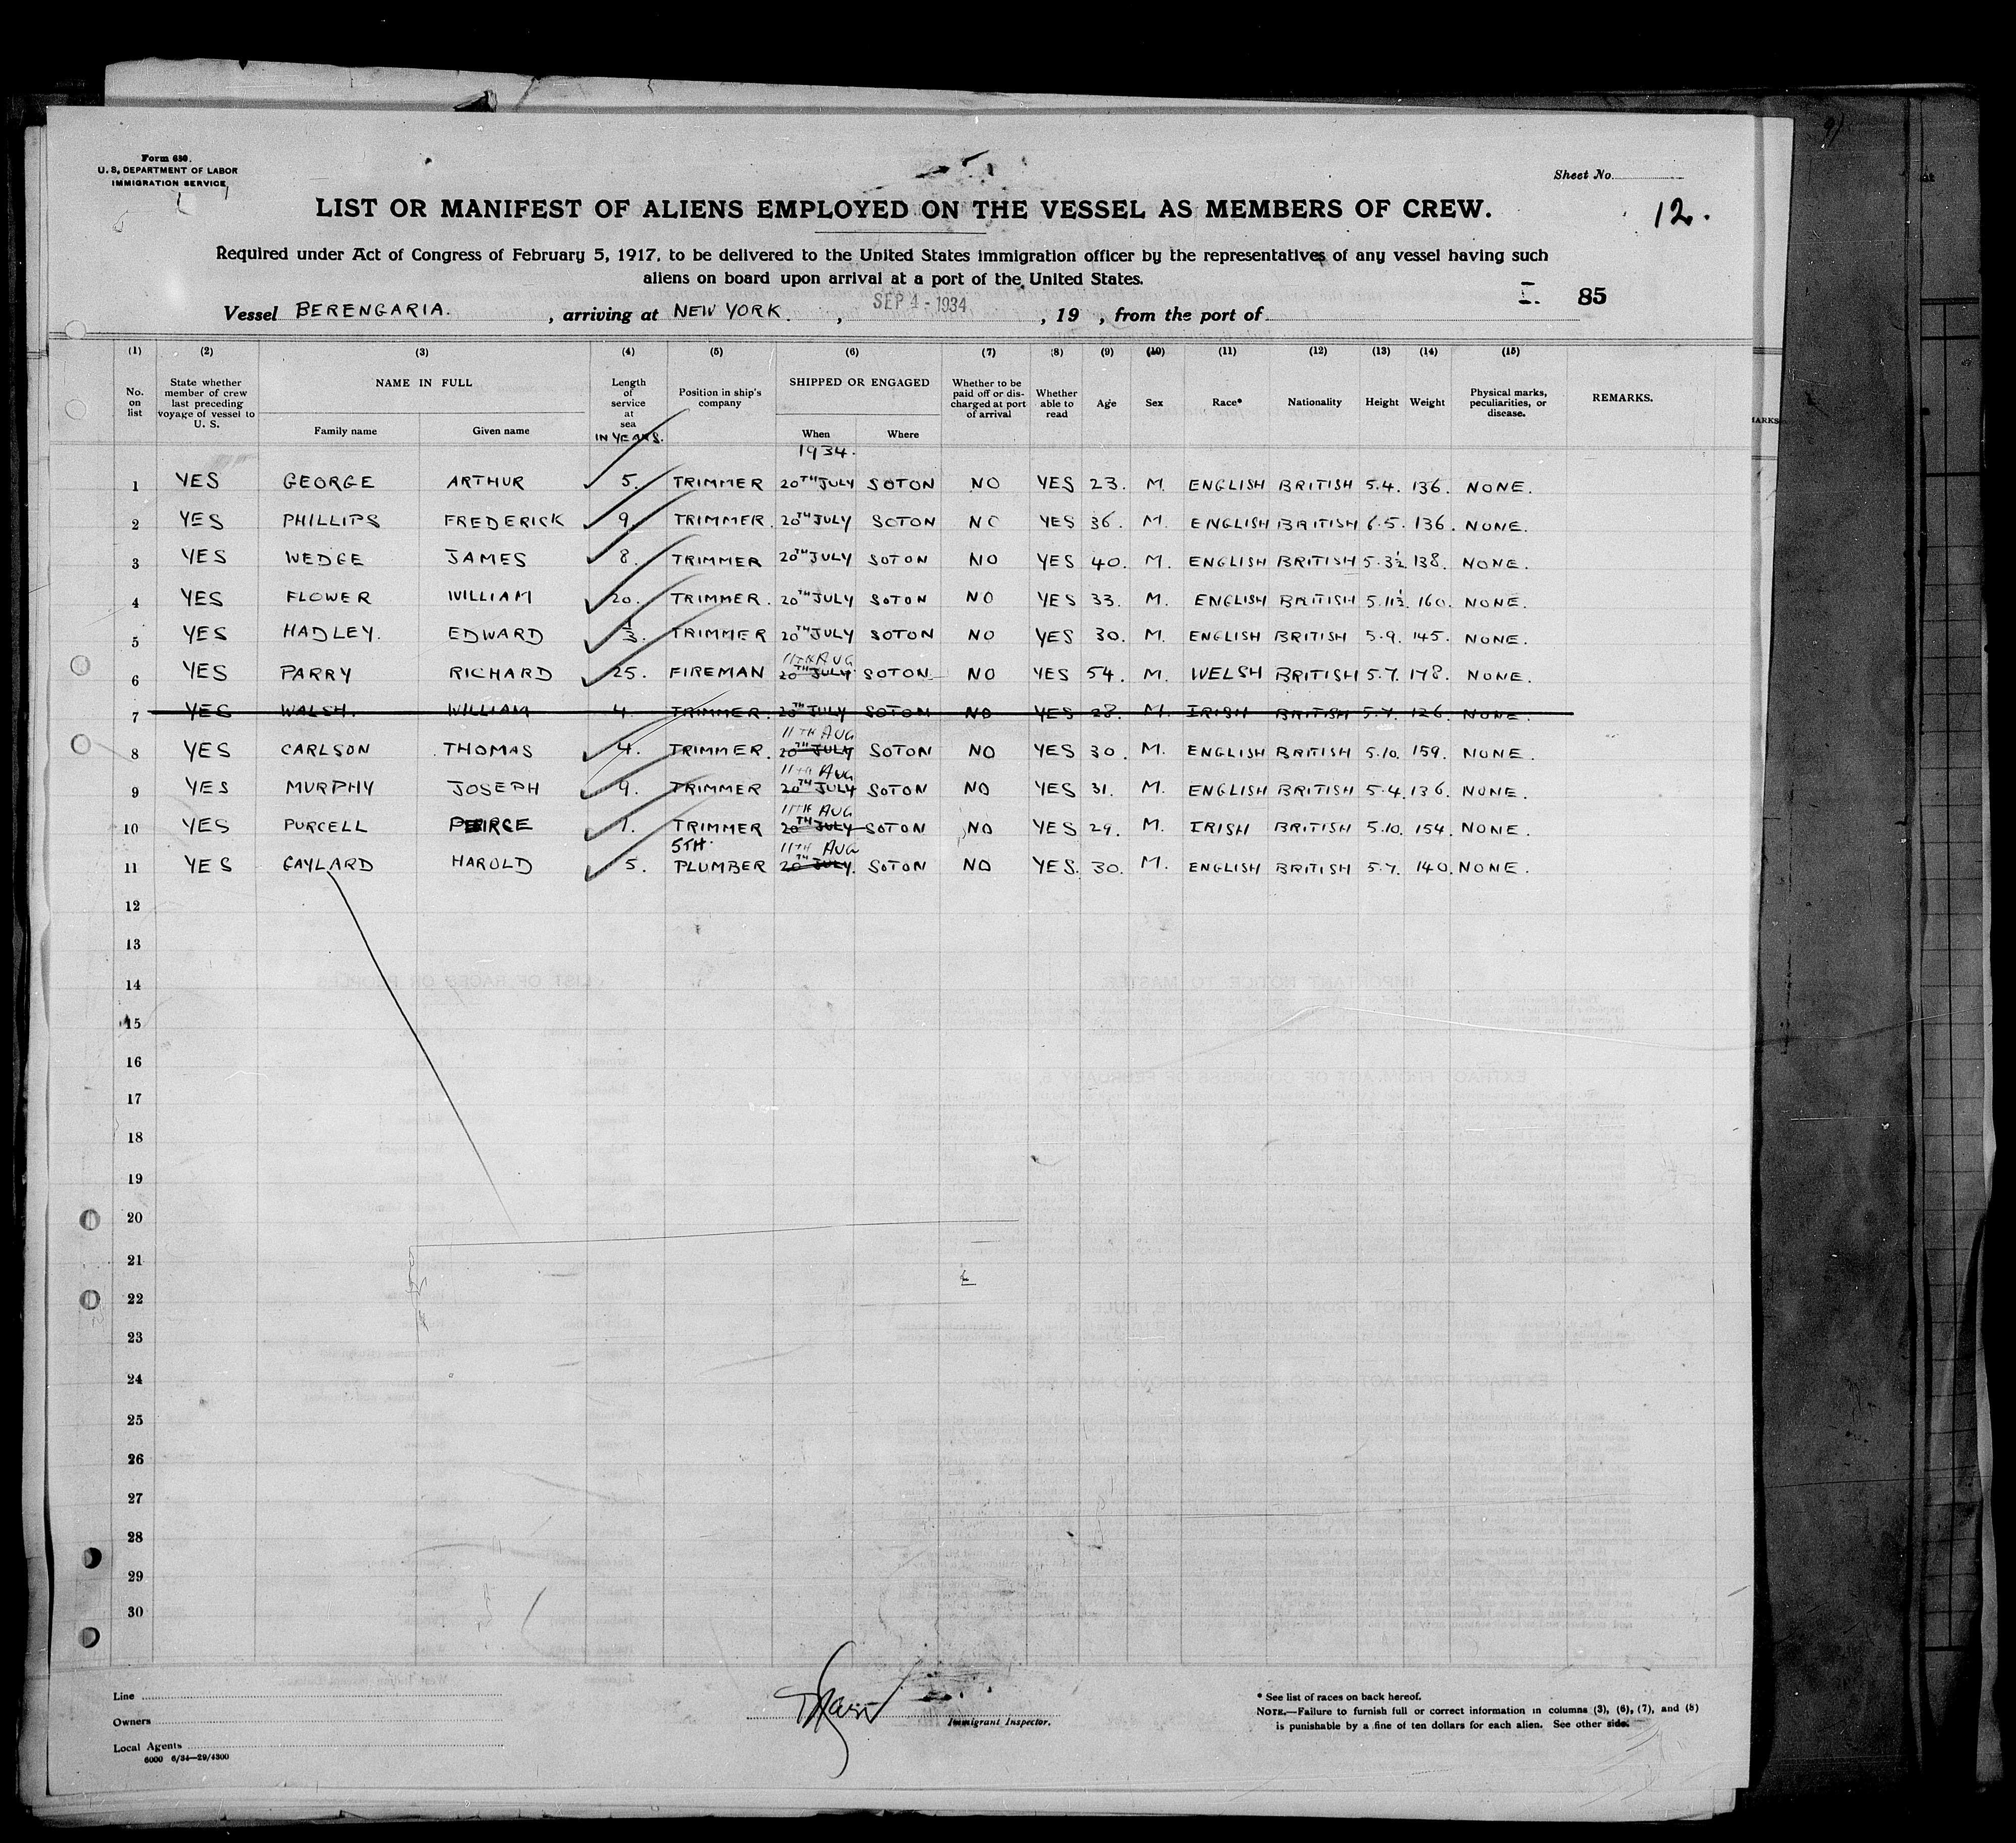 Form 630.
U. S. DEPARTMENT OF LABOR
IMMIGRATION SERVICE
Sheet No.
LIST OR MANIFEST OF ALIENS EMPLOYED ON THE VESSEL AS MEMBERS OF CREW.
12.
Required under Act of Congress of February 5, 1917, to be delivered to the United States immigration officer by the representatives of any vessel having such
aliens on board upon arrival at a port of the United States.
I. 85
Vessel BERENGARIA. , arriving at NEW YORK. , SEP 4 - 1934 , 19 , from the port of
(1) (2) (3) (4) (5) (6) (7) (8) (9) (10) (11) (12) (13) (14) (15)
No. on list State whether member of crew last preceding voyage of vessel to U. S. NAME IN FULL Family name Given name Length of service at sea IN YEARS. Position in ship's company SHIPPED OR ENGAGED When Where Whether to be paid off or discharged at port of arrival Whether able to read Age Sex Race* Nationality Height Weight Physical marks, peculiarities, or disease. REMARKS.
1934.
1 YES GEORGE ARTHUR 5. TRIMMER 20TH JULY SOTON NO YES 23. M. ENGLISH BRITISH 5.4. 136. NONE.
2 YES PHILLIPS FREDERICK 9. TRIMMER. 20TH JULY SOTON NO YES 36. M. ENGLISH BRITISH 6.5. 136. NONE.
3 YES WEDGE JAMES 8. TRIMMER 20TH JULY SOTON NO YES 40. M. ENGLISH BRITISH 5.3½ 138. NONE.
4 YES FLOWER WILLIAM 20. TRIMMER. 20TH JULY SOTON NO YES 33. M. ENGLISH BRITISH 5.11½. 160. NONE.
5 YES HADLEY. EDWARD ⅓. TRIMMER 20TH JULY SOTON NO YES 30. M. ENGLISH BRITISH 5.9. 145. NONE.
11TH AUG
6 YES PARRY RICHARD 25. FIREMAN 20TH JULY. SOTON. NO YES 54. M. WELSH BRITISH 5.7. 178. NONE.
7 YES WALSH. WILLIAM 4. TRIMMER. 20TH JULY SOTON NO YES 28. M. IRISH BRITISH 5.7. 126. NONE.
11TH AUG
8 YES CARLSON THOMAS 4. TRIMMER. 20TH JULY SOTON NO YES 30. M. ENGLISH BRITISH 5.10. 159. NONE.
11TH AUG
9 YES MURPHY JOSEPH 9. TRIMMER 20TH JULY SOTON NO YES 31. M. ENGLISH BRITISH 5.4. 136. NONE.
11TH AUG
10 YES PURCELL PEIRCE 1. TRIMMER 20TH JULY SOTON NO YES 29. M. IRISH BRITISH 5.10. 154. NONE.
5TH. 11TH AUG
11 YES GAYLARD HAROLD 5. PLUMBER 20TH JULY. SOTON NO YES. 30. M. ENGLISH BRITISH 5.7. 140. NONE.
12
13
14
15
16
17
18
19
20
21
22
23
24
25
26
27
28
29
30
Line
Owners
Local Agents
6000 6/34—29/4300
Immigrant Inspector.
* See list of races on back hereof.
NOTE.—Failure to furnish full or correct information in columns (3), (6), (7), and (8)
is punishable by a fine of ten dollars for each alien. See other side.